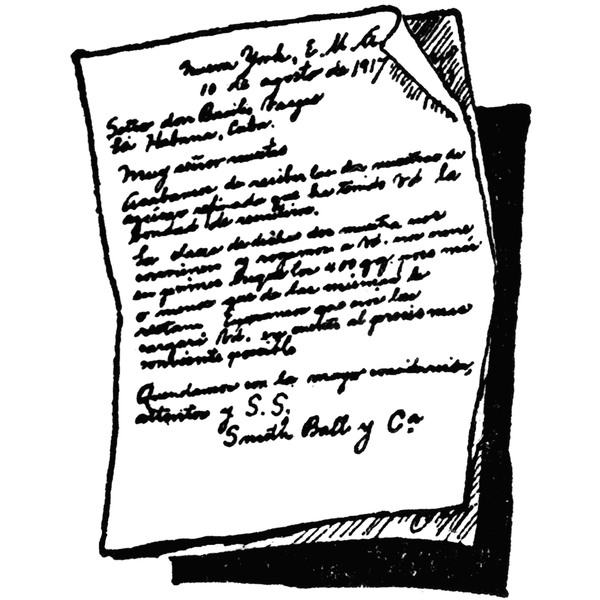 Nueva York, E. U. A.
10 de agosto de 1917
Señor don Basilio Vargas
La Habana, Cuba.
Muy señor nuestro
Acabamos de recibir las dos muestras de
azúcar refinado que ha tenido Vd. la
bondad de remitirnos.
La clase de dichas dos muestra nos
convienen y rogamos a Vd. nos mande
en primer buque los 400 qq. poco más
o menos que de las mismas le
restan. Esperamos que nos los
cargará Vd. en cuenta al precio mas
conveniente posible
Quedamos con la mayor consideración,
attentos y S. S.
Smith Ball y Ca